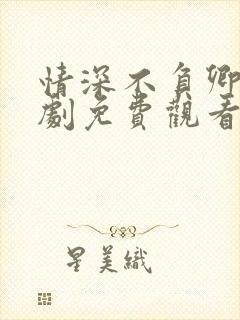 情深不負卿
劇免費觀看
星美織